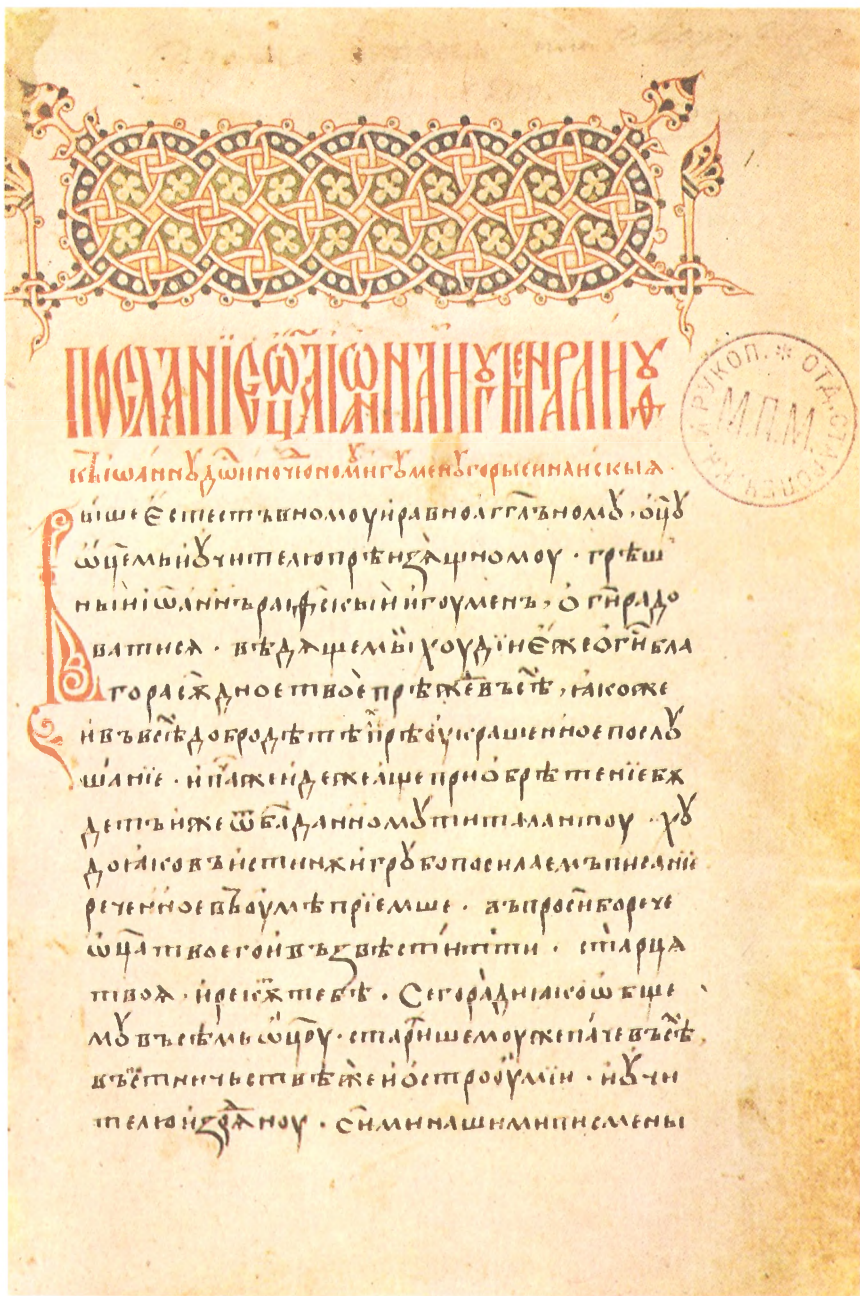 ПОСЛАНІЄ ѾЦА ІѠАННА ИГꙊМЕНА РАИѲꙊ
къ іѡаннꙋ дѡиночⷭ҇номꙋ игꙋменꙋ горы синаискыꙗ ·
Выше єстествномоу и равноагг҃лъномꙋ · ѻц҃ꙋ
ѡц҃емь и оучителю прѣизѧщномоу · грѣш
ныи іѡаннъ раиѳскыи игоуменъ, ѻ г҃и радо
ватисѧ · вѣдѧще мы хоудїи єже ѻ г҃и бла
горасѫдное твоє прѣжⷣе въсѣⷯ, ꙗкоже
и въ всѣⷯ добродѣтелⷯ прѣоукрашенное послꙋ
шанїе · и паⷱ҇ же идеже лꙋче приѡбрѣтенїе бѫ
детъ иже ѿ б҃а данномꙋ ти талантоу · хꙋ
до ꙗко въ истинѫ и грꙋбо посилаемъ писанїи
реченное въ оумѣ прїемше · въпроси бо рече
ѡц҃а твоего и възвѣститъ ти · старцѧ
твоꙗ · и рекѫт тебѣ · Сего ради ꙗко ѡбще
мꙋ въсѣмь ѡц҃оу · старѣишемоу же паче въсѣⷯ,
въ постничьствѣ же и ѻстроꙋмїи · и оучи
телю изрѧдноу · сими нашими писмены
ОТД. СТАРОПЕЧ. КН. И РУКОП. *
М.П.М.